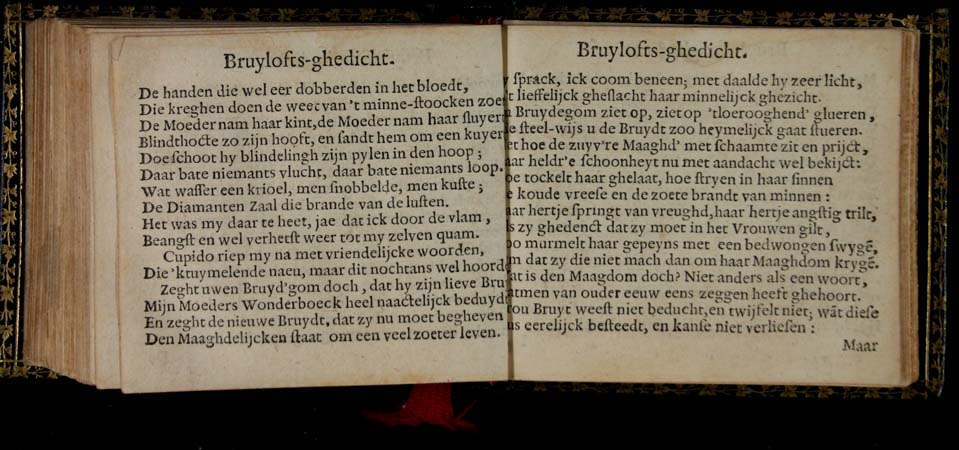 Bruylofts-ghedicht.
De handen die wel eer dobberden in het bloedt,
Die kreghen doen de weet van 't minne-stoocken zoet
De Moeder nam haar kint, de Moeder nam haar sluyer
Blindthocte zo zijn hooft, en sandt hem om een kuyer
Doe schoot hy blindelingh zijn pylen in den hoop;
Daar bate niemants vlucht, daar bate niemants loop.
Wat wasser een krioel, men snobbelde, men kuste;
De Diamanten Zaal die brande van de lusten.
Het was my daar te heet, jae dat ick door de vlam,
Beangst en wel verheest weer tot my zelven quam.
Cupido riep my na met vriendelijcke woorden,
Die 'k tuymelende naeu, maar dit nochtans wel hoord
Zeght uwen Bruyd'gom doch, dat hy zijn lieve Bru
Mijn Moeders Wonderboeck heel naactelijck beduydt
En zeght de nieuwe Bruydt, dat zy nu moet begheven
Den Maaghdelijcken staat om een veel zoeter leven.
Bruylofts-ghedicht.
sprack, ick coom beneen; met daalde hy zeer licht,
't lieffelijck gheslacht haar minnelijck ghezicht.
Bruydegom ziet op, ziet op 'tloerooghend' glueren,
steel-wijs u de Bruydt zoo heymelijck gaat stueren.
hoe de zuyv're Maaghd' met schaamte zit en prijct,
heldr'e schoonheyt nu met aandacht wel bekijct:
tockelt haar ghelaat, hoe stryen in haar sinnen
koude vreese en de zoete brandt van minnen:
hertje springt van vreughd, haar hertje angstig trilt,
zy ghedenct dat zy moet in het Vrouwen gilt,
murmelt haar gepeyns met een bedwongen swygē,
dat zy die niet mach dan om haar Maaghdom krygē.
is den Maagdom doch? Niet anders als een woort,
men van ouder eeuw eens zeggen heeft ghehoort.
Bruyt weest niet beducht, en twijfelt niet; wāt diese
eerelijck besteedt, en kanse niet verliesen:
Maar